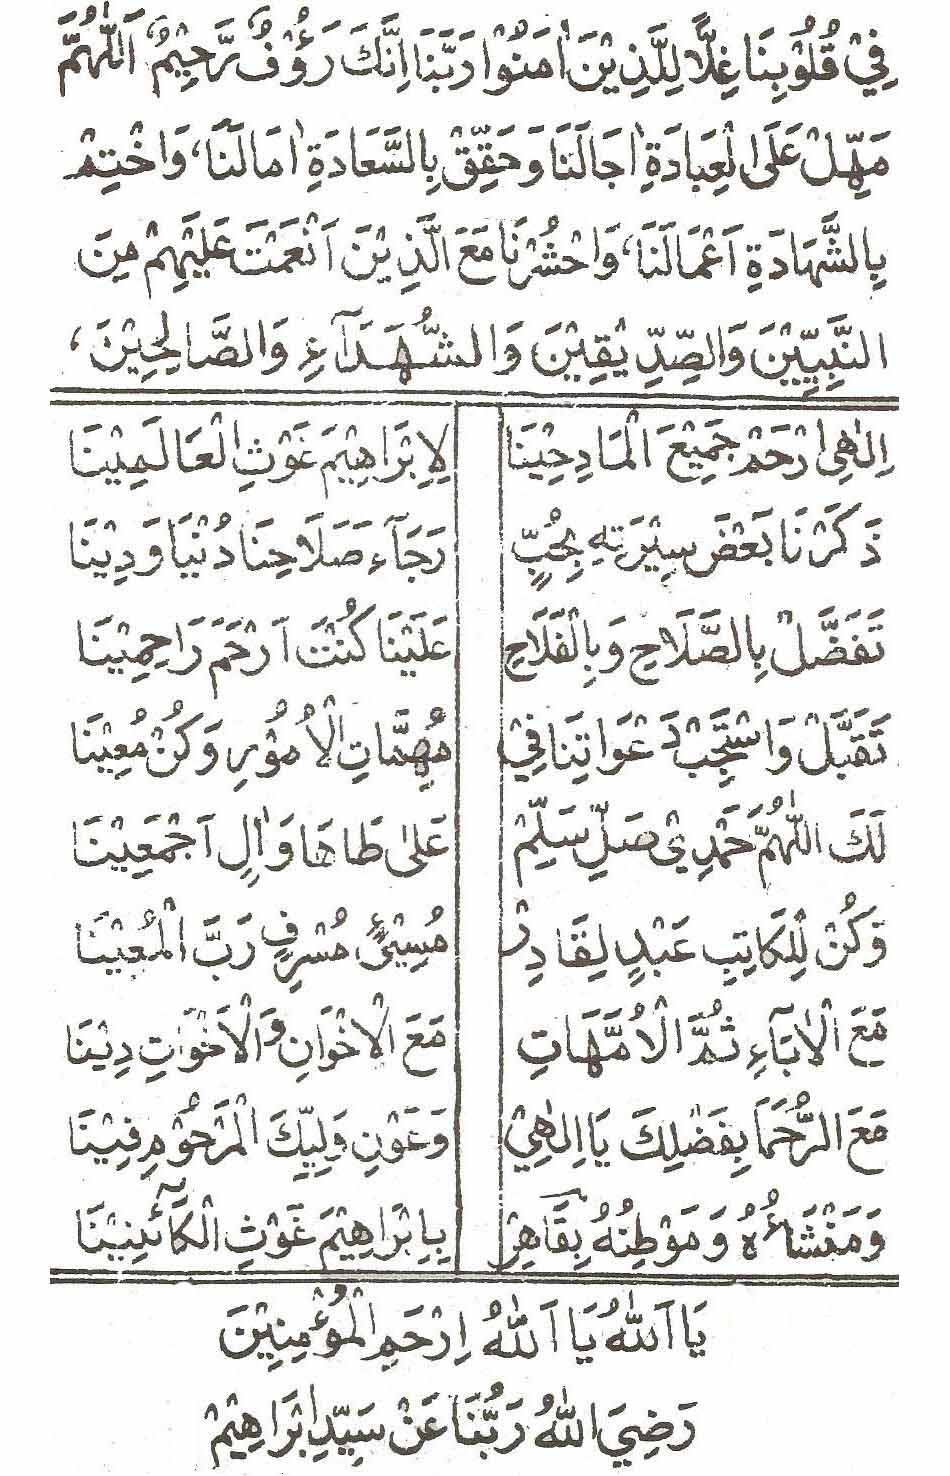 فِيْ قُلُوْبِنَا غِلًّا لِلَّذِيْنَ اٰمَنُوْا رَبَّنَا اِنَّكَ رَؤُوْفٌ رَّحِيْمٌ، اَللّٰهُمَّ
مَهِّلْ عَلَى الْعِبَادَةِ اٰجَالَنَا وَحَقِّقْ بِالسَّعَادَةِ اٰمَالَنَا، وَاخْتِمْ
بِالشَّهَادَةِ اَعْمَالَنَا، وَاحْشُرْنَا مَعَ الَّذِيْنَ اَنْعَمْتَ عَلَيْهِمْ مِنَ
النَّبِيِّيْنَ وَالصِّدِّيْقِيْنَ وَالشُّهَدَآءِ وَالصَّالِحِيْنَ،
اِلٰهِى ارْحَمْ جَمِيْعَ الْمَادِحِيْنَا لِاِبْرَاهِيْمَ غَوْثِ الْعَالَمِيْنَا
ذَكَرْنَا بَعْضَ سِيْرَتِهِ بِحُبٍّ رَجَآءِ صَلَاحِنَا دُنْيَا وَدِيْنَا
تَفَضَّلْ بِالصَّلَاحِ وَبِالْفَلَاحِ عَلَيْنَا كُنْتَ اَرْحَمَ رَاحِمِيْنَا
تَقَبَّلْ وَاسْتَجِبْ دَعَوَاتِنَا فِيْ مُهِمَّاتِ الْاُمُوْرِ وَكُنْ مُعِيْنَا
لَكَ اللّٰهُمَّ حَمْدِيْ صَلِّ سَلِّمْ عَلٰى طَاهَا وَاٰلٍ اَجْمَعِيْنَا
وَكُنْ لِلْكَاتِبِ عَبْدٍ لِقَادِرْ مُسِيْئٍ مُسْرِفٍ رَبَّ الْمُعِيْنَا
مَعَ الْاٰبَآءِ ثُمَّ الْاُمَّهَاتِ مَعَ الْاِخْوَانِ وَالْاَخْوَاتِ دِيْنَا
مَعَ الرُّحَمَا بِفَضْلِكَ يَا اِلٰهِيْ وَعَوْنِ وَلِيِّكَ الْمَرْحُوْمِ فِيْنَا
وَمَنْشَاُهُ وَمَوْطِنُهُ بِقَاهِرْ بِاِبْرَاهِيْمَ غَوْثِ الْكَآئِنِيْنَا
يَا اَللّٰهُ يَا اَللّٰهُ اِرْحَمِ الْمُؤْمِنِيْنَ
رَضِيَ اللّٰهُ رَبُّنَا عَنْ سَيِّدِ اِبْرَاهِيْمْ